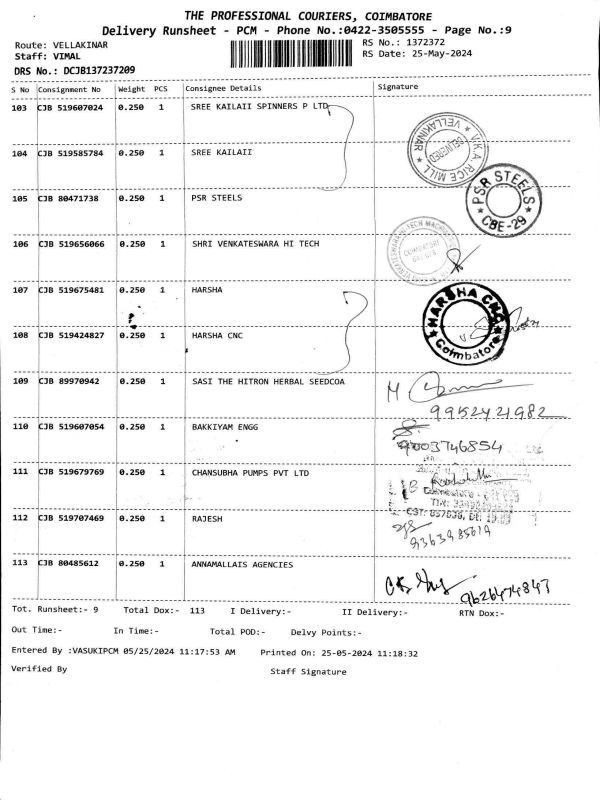 THE PROFESSIONAL COURIERS, COIMBATORE
Delivery Runsheet - PCM - Phone No.:0422-3505555 - Page No.:9
Route: VELLAKINAR
RS No.: 1372372
Staff: VIMAL
RS Date: 25-May-2024
DRS No.: DCJB137237209
S No Consignment No Weight PCS Consignee Details Signature
103 CJB 519607024 0.250 1 SREE KAILAII SPINNERS P LTD
VELLAKINAR * V.K.A. RICE MILL * DELIVERED
104 CJB 519585784 0.250 1 SREE KAILAII
105 CJB 80471738 0.250 1 PSR STEELS
* PSR STEELS * CBE-29
106 CJB 519656066 0.250 1 SHRI VENKATESWARA HI TECH
107 CJB 519675481 0.250 1 HARSHA
* HARSHA CNC * Coimbatore
108 CJB 519424827 0.250 1 HARSHA CNC
109 CJB 89970942 0.250 1 SASI THE HITRON HERBAL SEEDCOA
9952421982
110 CJB 519607054 0.250 1 BAKKIYAM ENGG
9003746854
111 CJB 519679769 0.250 1 CHANSUBHA PUMPS PVT LTD
112 CJB 519707469 0.250 1 RAJESH
9363985614
113 CJB 80485612 0.250 1 ANNAMALLAIS AGENCIES
9626474847
Tot. Runsheet:- 9 Total Dox:- 113 I Delivery:- II Delivery:- RTN Dox:-
Out Time:- In Time:- Total POD:- Delvy Points:-
Entered By :VASUKIPCM 05/25/2024 11:17:53 AM Printed On: 25-05-2024 11:18:32
Verified By Staff Signature